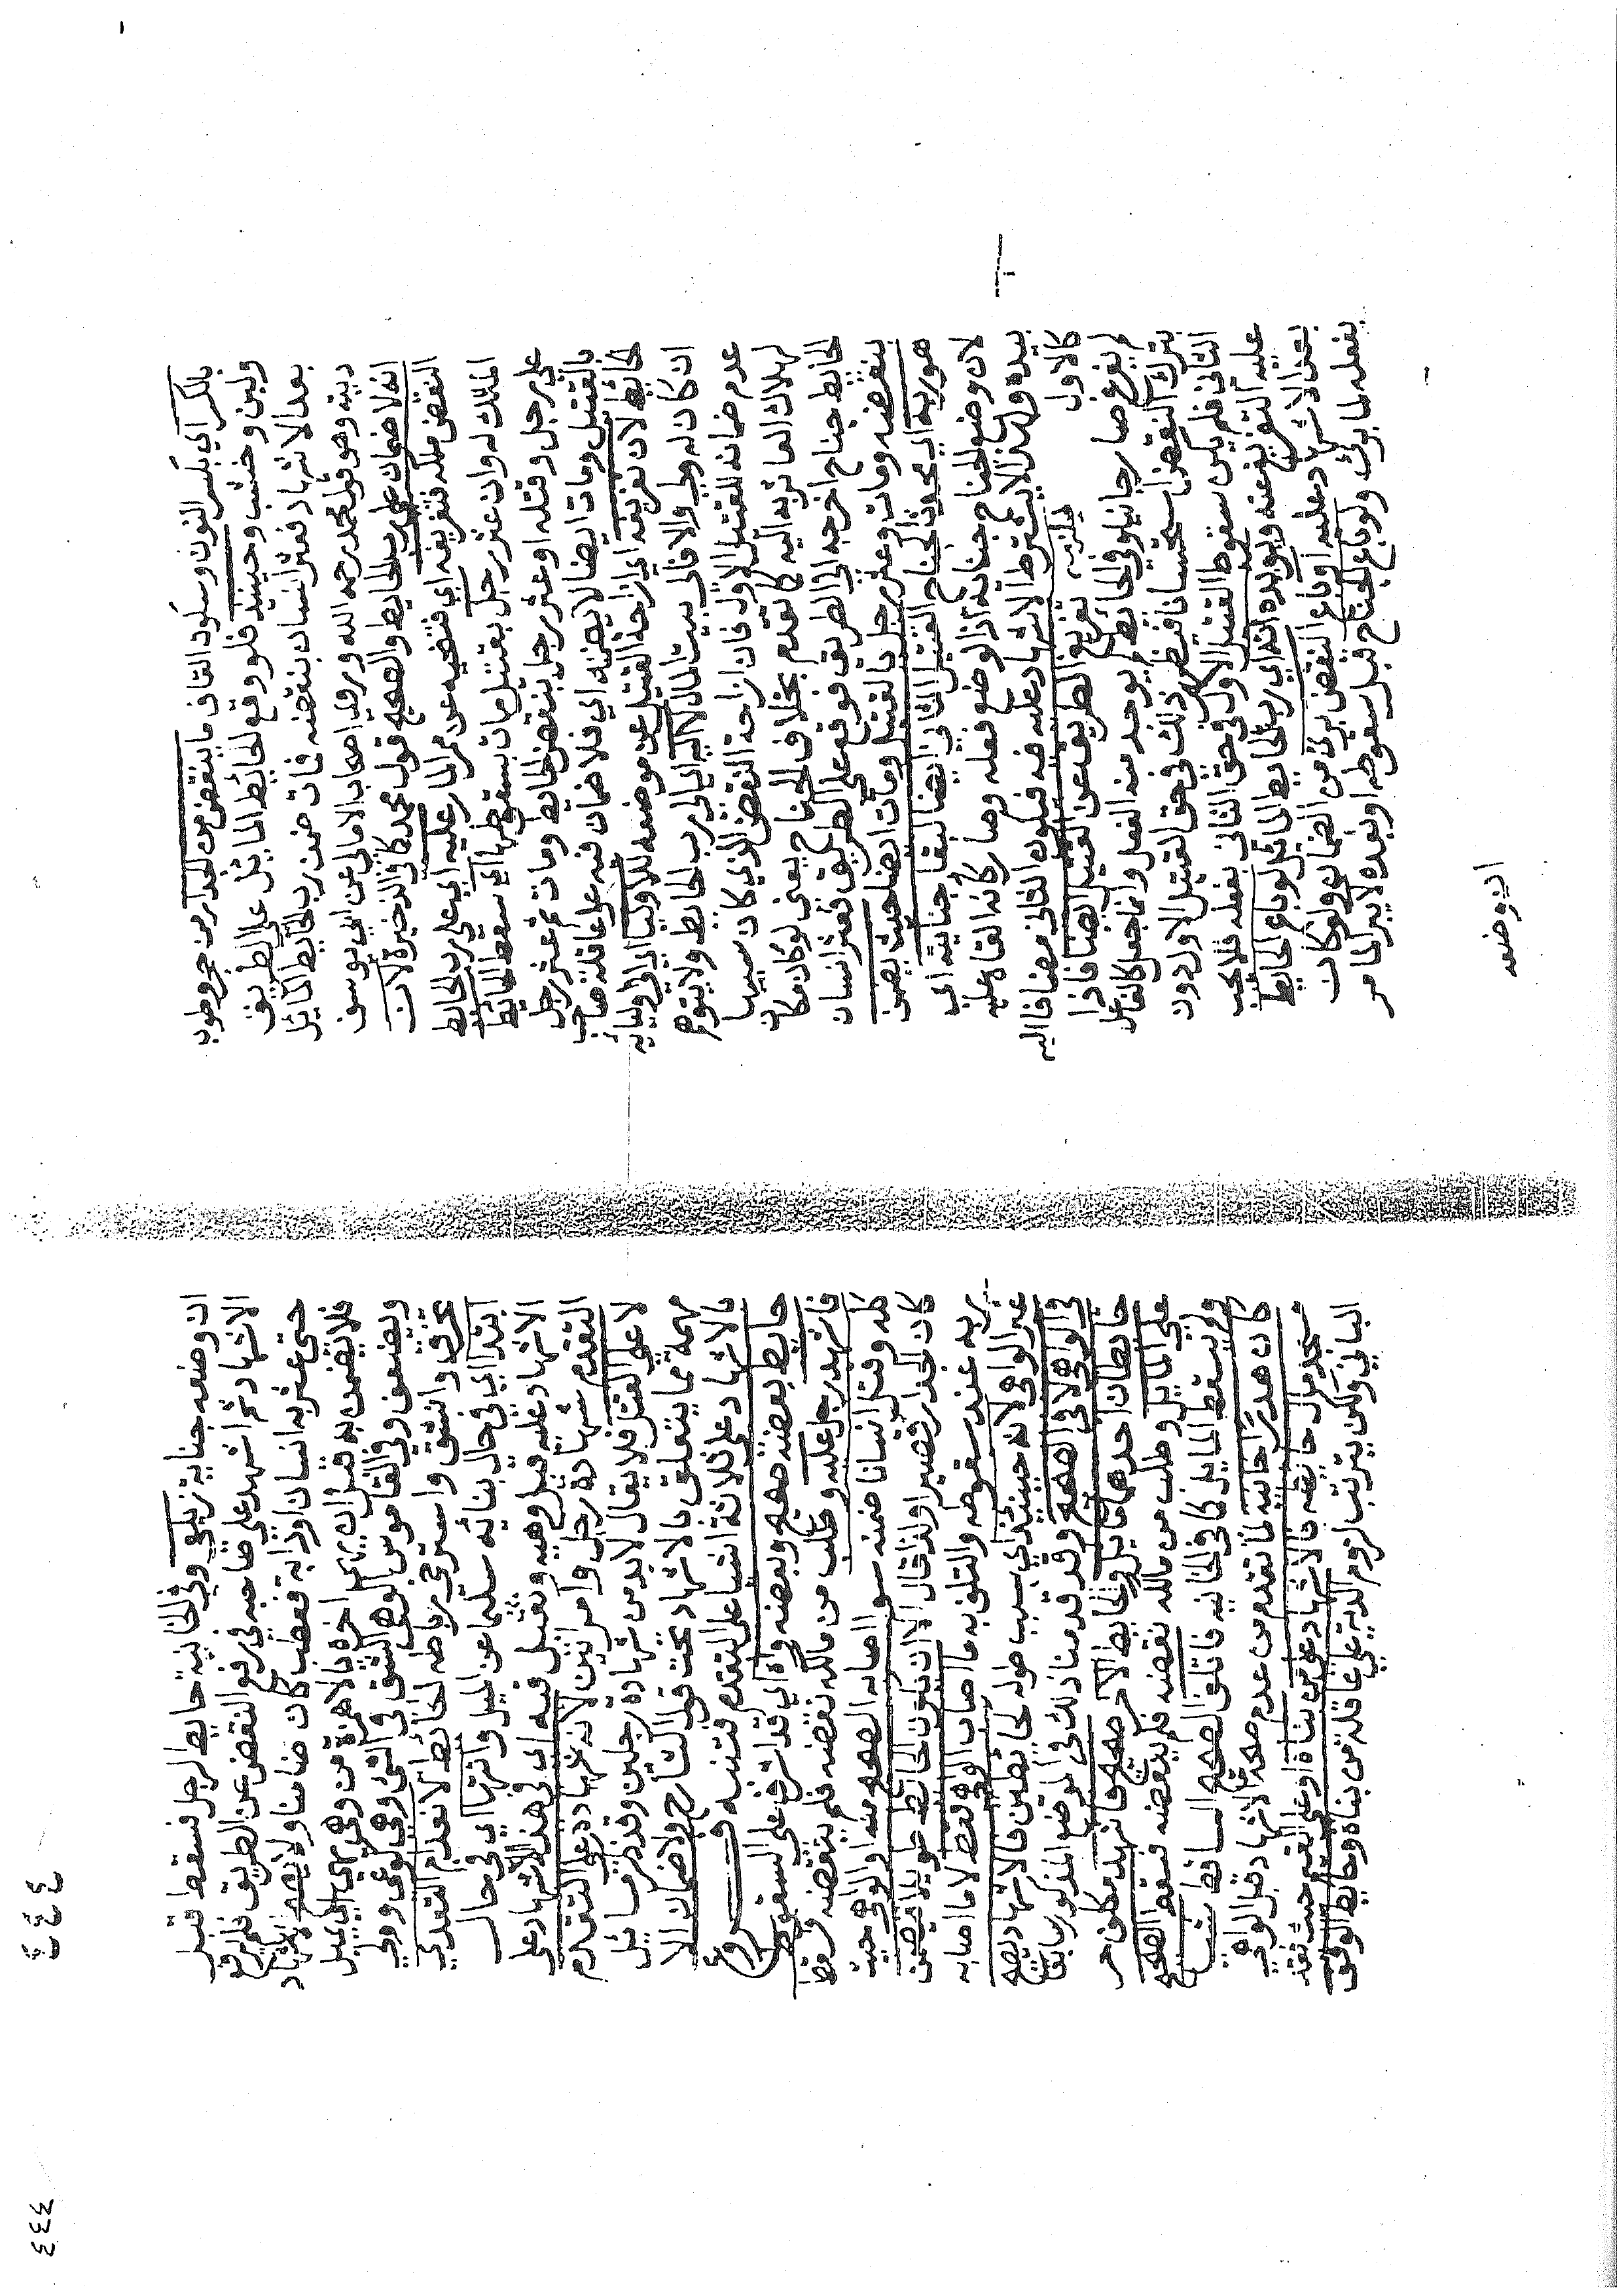 بالكسر اي بكسر النون وسكون القاف ما ينتقض من الجدار من حجر وطوب
ولبن وخشب وحينئذ فلو وقع الحائط المائل على الطريق
بعد الاشهاد فعثر انسان بنقضه فمات ضمن رب الحايط المائل
ديته وهو قول محمد رحمه الله وروي اصحاب الامالي عن ابي يوسف
انه لا ضمان على رب الحايط والصحيح قول محمد كما في الذخيرة لان
النقض ملكه فتفريغه اي فتنحيه عن ممر المار عليه اي على رب الحائط
الملك له وان عثر رجل بقتيل مات بسقوطها اي سقط الحائط
على رجل وقتله او عثر رجل بنقض الحايط ومات ثم عثر رجل
بالقتيل ومات ايضا لا يضمنه اي فلا ضمان فيه على عاقلة صاحب
الحائط لان تفريغه اي ازاحة القتيل عن موضعه للاوليا اي الي اوليائه
ان كان له ولي والا فالى بيت المال لا اليه اي الى رب الحايط ولا يتوهم
عدم ضمانه للقتيل الاول فان ازاحة النقض الذي كان سببها
لهلاك العاثر به اليه كما تقدم بخلاف الجناح يعني لو كان مكان
الحايط جناح اخرجه الى الطريق فوقع على الطريق فعثر انسان
بنقضه ومات وعثر رجل بالقتيل ومات ايضا حيث يضمن
هو ربه اي مخرج الجناح القتيل الثاني ايضا لبقا جنايته اي
لان وضع الجناح جناية اذ الوضع فعله وصار كانه القاه عليه
بيده ولهذا لا يشترط الاشهاد عليه فيه فيكون الثاني مضافا اليه
كالاول فيلزمه تفريغ الطريق عن القتيل ايضا فاذا
لم يفرغ صار جانيا وفي الحائط لم يوجد منه الفعل وانما جعل كالفاعل
بترك النقض استحسانا فيظهر ذلك في حق القتيل الاول دون
الثاني فلم يكن سقوط القتيل الاول في حق الثاني بفعله فلا يجب
عليه التفريغ عنه ويؤيده انه اي رب الحايط المائل لو باع الحايط
بعد الاشهاد عليه او باع النقض برئ من الضمان ولو كان
بفعله لما برئ ولو باع الجناح قبل سقوطه او بعده لا يبرا لما مر
ان وضعه
ان وضعه جناية زيلعي وفي الخانية حايط لرجل فسقط قبل
الاشهاد ثم اشهد على صاحبه في رفع النقض عن الطريق فلم يرفع
حتى عثر به انسان او دابة فعطب كان ضامنا ولا يصح الاشهاد
فلا يضمن به قبل ان يهي اخره بالهمزة من وهي يهي اي يميل
ويضعف وفي القاموس الوهي الشق في الشي وهي كوعى وولي
تخرق وانشق واسترخى رباطه الحائط لانعدام التعدي
ابتدا اي في حال بنائه سلتما عن الميل وانتها اي في حال
الاشهاد عليه قبل وهيه وتقبل فيه اي في هذا الاشهاد على
التقدم شهادة رجل وامراتين لانه شهادة على التقدم
لا على القتل فلا يقال لا بد من شهادة رجلين وقد مر مسائل
مهمة مما يتعلق بالاشهاد تحت قول الشارح ولا ضمان الا
بالاشهاد على ثلاثة اشيا على التقدم فتنبه فروع
حايط بعضه صحيح وبعضه واه اي قد اشرف على السقوط
فاشهد رجل عليه وطلب من مالكه نقضه فلم ينقضه وسقط
كله وقتل انسانا ضمنه سوا اصابه الصحيح منه او الواهي حيث
كان الجدار قصيرا ولذا قال الا ان يكون الحائط طويلا فيضمن
ربه عند سقوطه والتلف به ما اصاب الواهي فقط لا ما اصابه
غير الواهي لانه حينئذ اي بسبب طوله كحائطين فالاشهاد يصح
في الواهي لا في الصحيح وقد قدمنا ذلك في الموضع المذكور سابقا
حايطان احدهما مايل والحايط الاخر صحيح فاشهد مكلف حر
على المايل وطلب من مالكه نقضه فلم ينقضه فسقط الصحيح
ولم يسقط المايل كما في الخانية فاتلف الصحيح الساقط شيا
كان هدرا خانية لما تقدم من عدم صحة الاشهاد قبل الوهي
مسجد مال حائطه فالاشهاد على من بناه او على القيم حيث تعذر
الباني ولكن يترتب لزوم الدية على عاقلة من بناه وحايط الوقف
٤٤٤